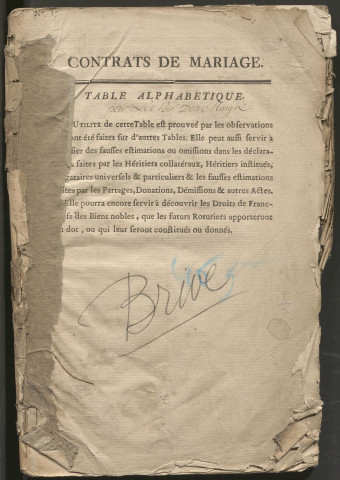 CONTRATS DE MARIAGE.
TABLE ALPHABETIQUE.
UTILITÉ de cette Table est prouveé par les observations
ont été faites sur d'autres Tables. Elle peut aussi servir à
fier des fausses estimations ou omissions dans les déclara-
s faites par les Héritiers collatéraux, Héritiers institués,
gataires universels & particuliers & les fausses estimations
ites par les Partages, Donations, Démissions & autres Actes.
Elle pourra encore servir à découvrir les Droits de Franc-
fs des Biens nobles, que les futurs Roturiers apporteront
n dot, ou qui leur seront constitués ou donnés.
Brive